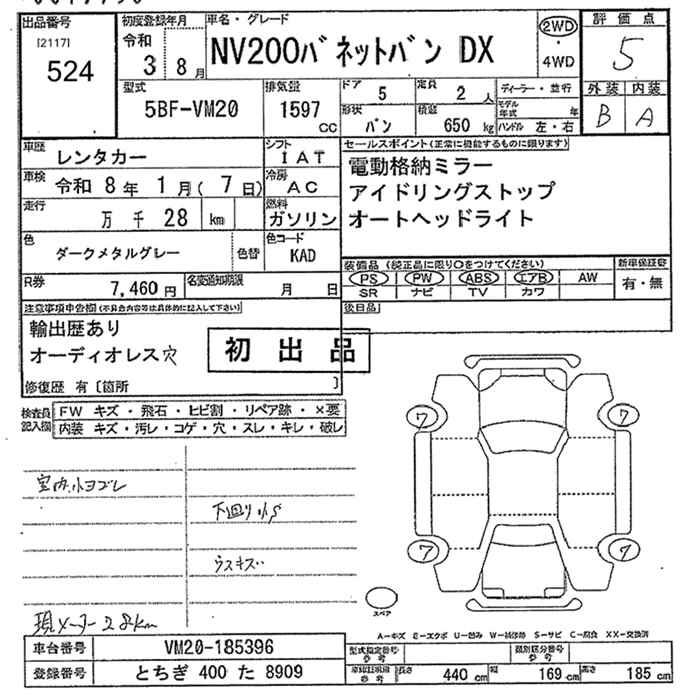 出品番号
[2117]
524
初度登録年月
令和
3 8月
車名・グレード
NV200バネットバン DX
2WD
・
4WD
評価点
5
外装 内装
B A
型式
5BF-VM20
排気量
1597
cc
ドア
5
定員
2人
ディーラー・並行
形状
バン
積載
650 kg
モデル年式 年
ハンドル 左・右
車歴
レンタカー
シフト
IAT
車検
令和 8年 1月( 7日)
冷房
AC
走行
万 千 28 km
燃料
ガソリン
色
ダークメタルグレー
色替
色コード
KAD
R券
7,460円
名変通知期限
月 日
セールスポイント(正常に機能するものに限ります)
電動格納ミラー
アイドリングストップ
オートヘッドライト
装備品(純正品に限り○をつけてください)
PS PW ABS エアB AW
SR ナビ TV カワ
新車保証書
有・無
後日品
注意事項申告欄(不具合内容等は具体的に記入して下さい)
輸出歴あり
オーディオレス穴
初出品
修復歴 有〔箇所 〕
検査員記入欄
FW キズ・飛石・ヒビ割・リペア跡・×要
内装 キズ・汚レ・コゲ・穴・スレ・キレ・破レ
室内小ヨゴレ
下回り小S
ウスキズ
現メーター28km
7
7
7
7
スペア
A-キズ E-エクボ U-凹み W-補修跡 S-サビ C-腐食 XX-交換済
車台番号
VM20-185396
登録番号
とちぎ 400 た 8909
型式指定番号
参考
類別区分番号
参考
車車証明書
参考
長さ
440 cm
幅
169 cm
高さ
185 cm